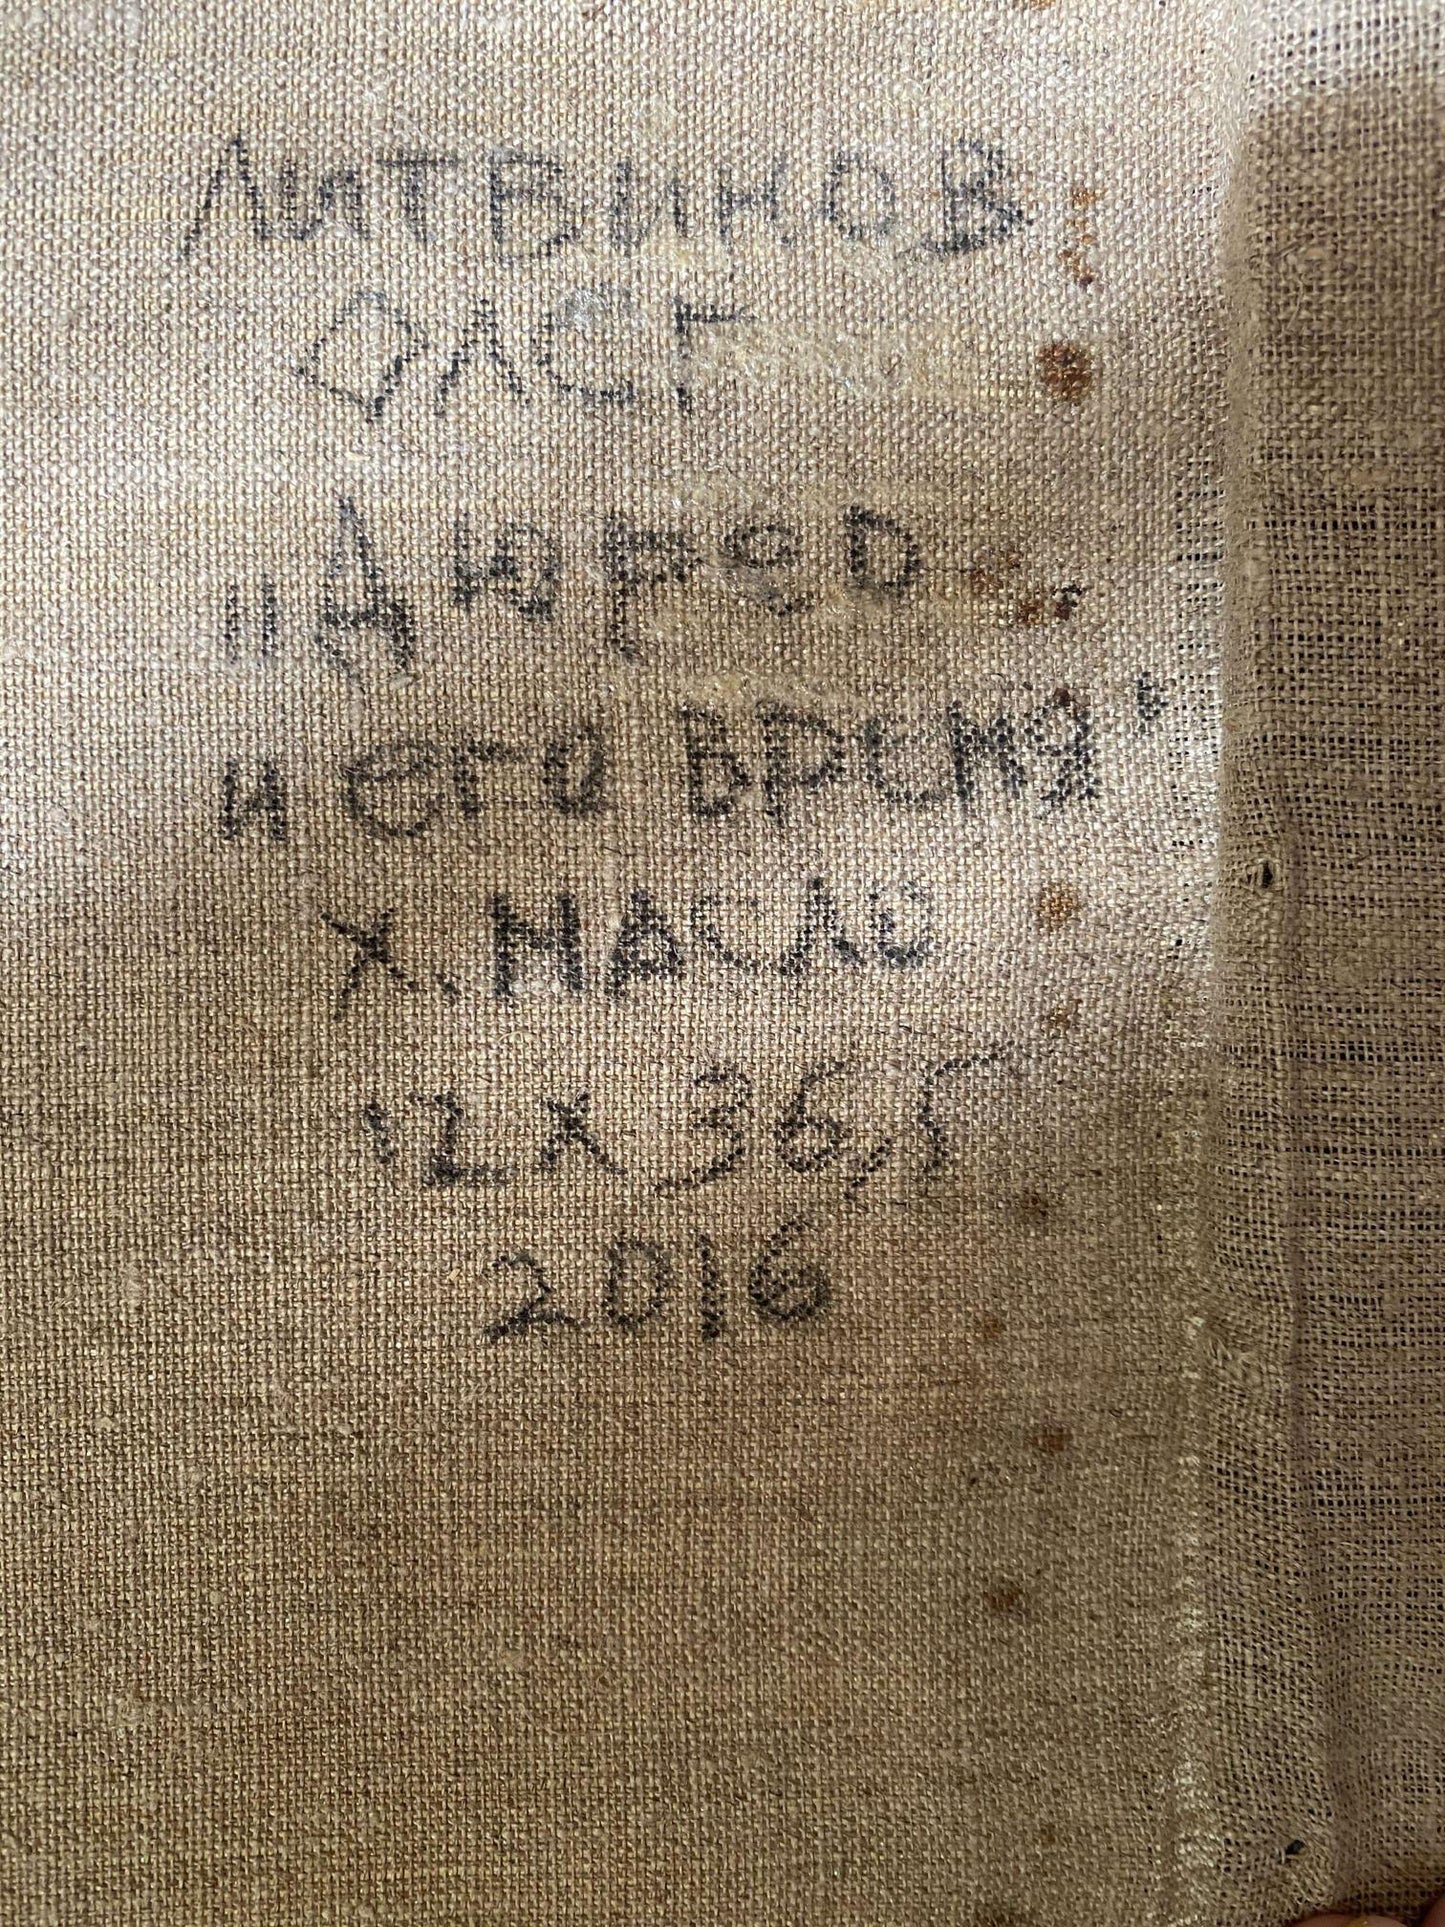 ЛИТВИНОВ
ОЛЕГ
"Дюрер
и его время"
х. масло
12 х 36,5
2016